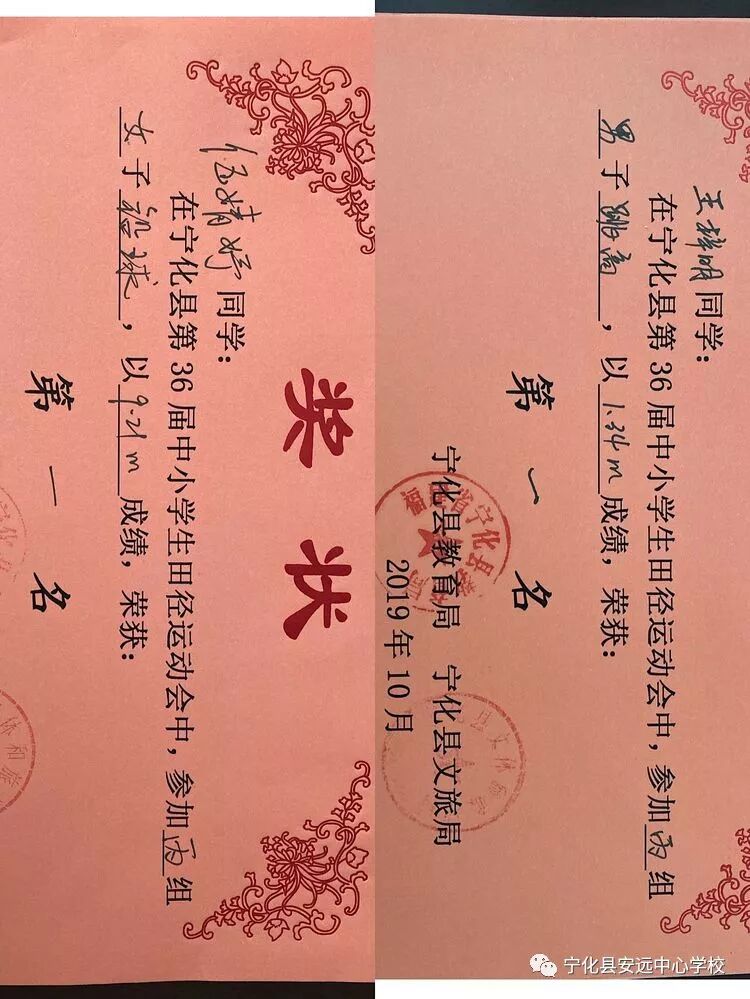 奖状
伍婧婷同学：
在宁化县第36届中小学生田径运动会中，参加丙组
女子铅球，以9.21m成绩，荣获：
第一名
王梓明同学：
在宁化县第36届中小学生田径运动会中，参加丙组
男子跳高，以1.34m成绩，荣获：
第一名
宁化县教育局 宁化县文旅局
2019年10月
宁化县安远中心学校